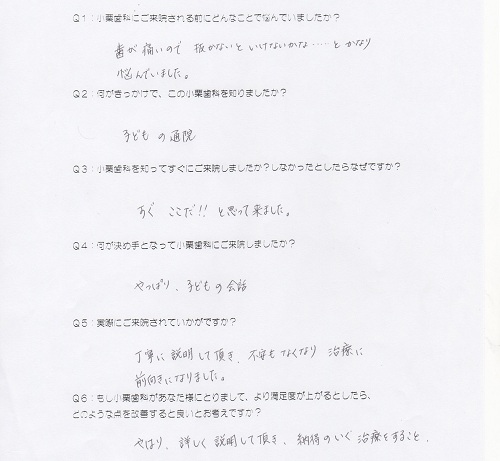 Q1：小栗歯科にご来院される前にどんなことで悩んでいましたか？
歯が痛いので 抜かないといけないかな……とかなり
悩んでいました。
Q2：何がきっかけで、この小栗歯科を知りましたか？
子どもの通院
Q3：小栗歯科を知ってすぐにご来院しましたか？しなかったとしたらなぜですか？
すぐ ここだ！！と思って来ました。
Q4：何が決め手となって小栗歯科にご来院しましたか？
やっぱり、子どもの会話
Q5：実際にご来院されていかがですか？
丁寧に説明して頂き、不安もなくなり 治療に
前向きになりました。
Q6：もし小栗歯科があなた様にとりまして、より満足度が上がるとしたら、
どのような点を改善すると良いとお考えですか？
やはり、詳しく説明して頂き、納得のいく治療をすること、